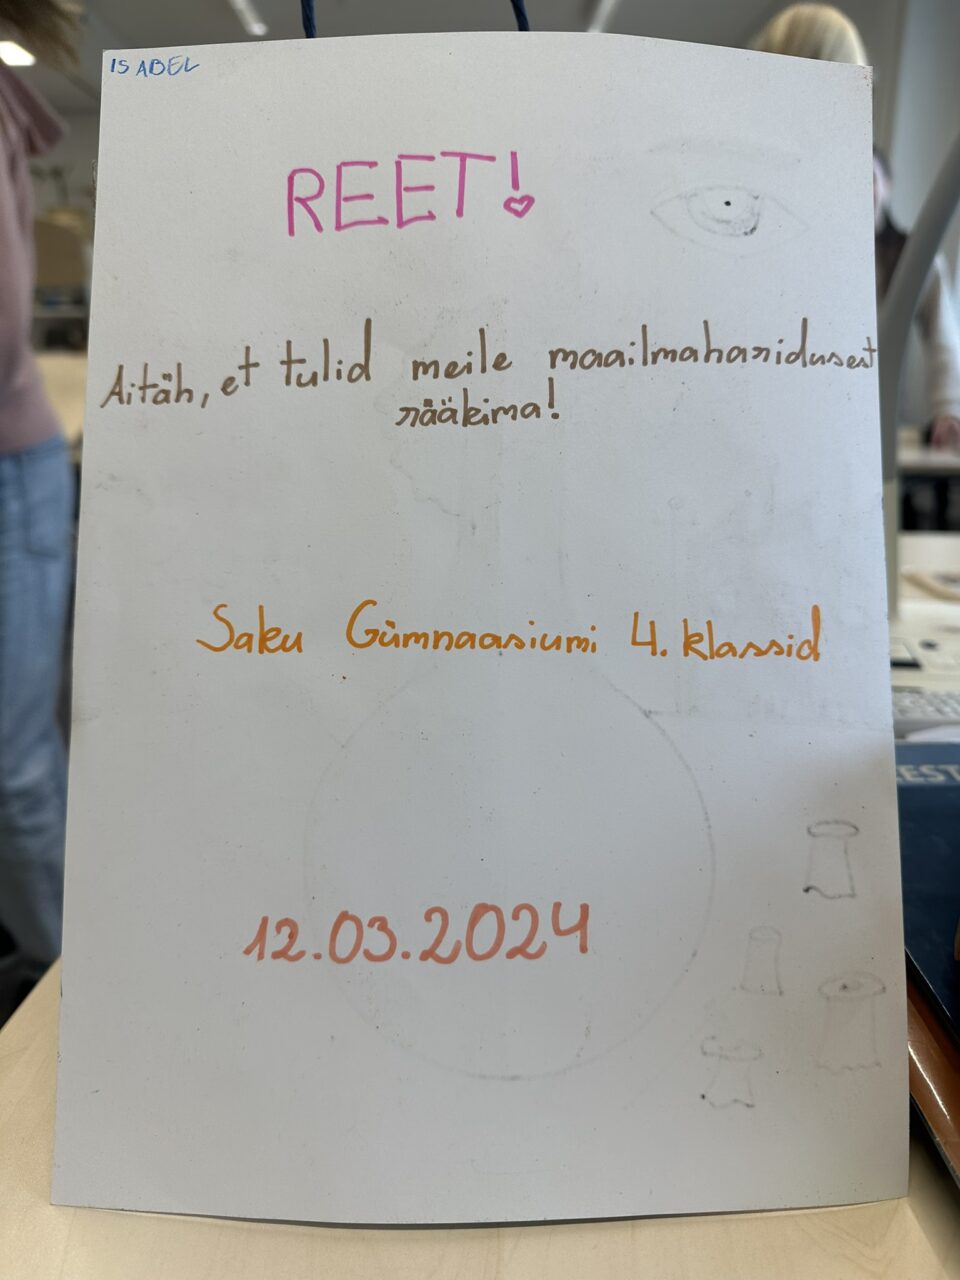 ISABEL
REET!
Aitäh, et tulid meile maailmaharidusest
rääkima!
Saku Gümnaasiumi 4. klassid
12.03.2024
EEST